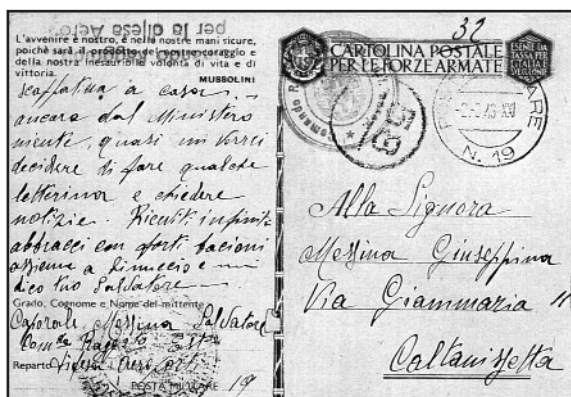 per la difesa Aerop
L'avvenire è nostro, è nelle nostre mani sicure,
poichè sarà il prodotto del nostro coraggio e
della nostra inesauribile volontà di vita e di
vittoria.
MUSSOLINI
a casa,
ancora dal Ministero
niente, quasi mi
decidere di fare qualche
letterina e chiedere
notizie. Ricevi infiniti
abbracci con forti bacioni
assieme a Pinuccio e mi
dico tuo Salvatore
Grado, Cognome e Nome del mittente
Caporale Messina Salvatore
Reparto Difesa
POSTA MILITARE 19
32
CARTOLINA POSTALE
PER LE FORZE ARMATE
ESENTE DA
TASSA PER
N. 19
Alla Signora
Messina Giuseppina
Via Giammaria 11
Caltanissetta